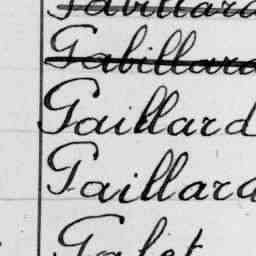 Gabillard
Gabillard
Gaillard
Gaillard
Galet